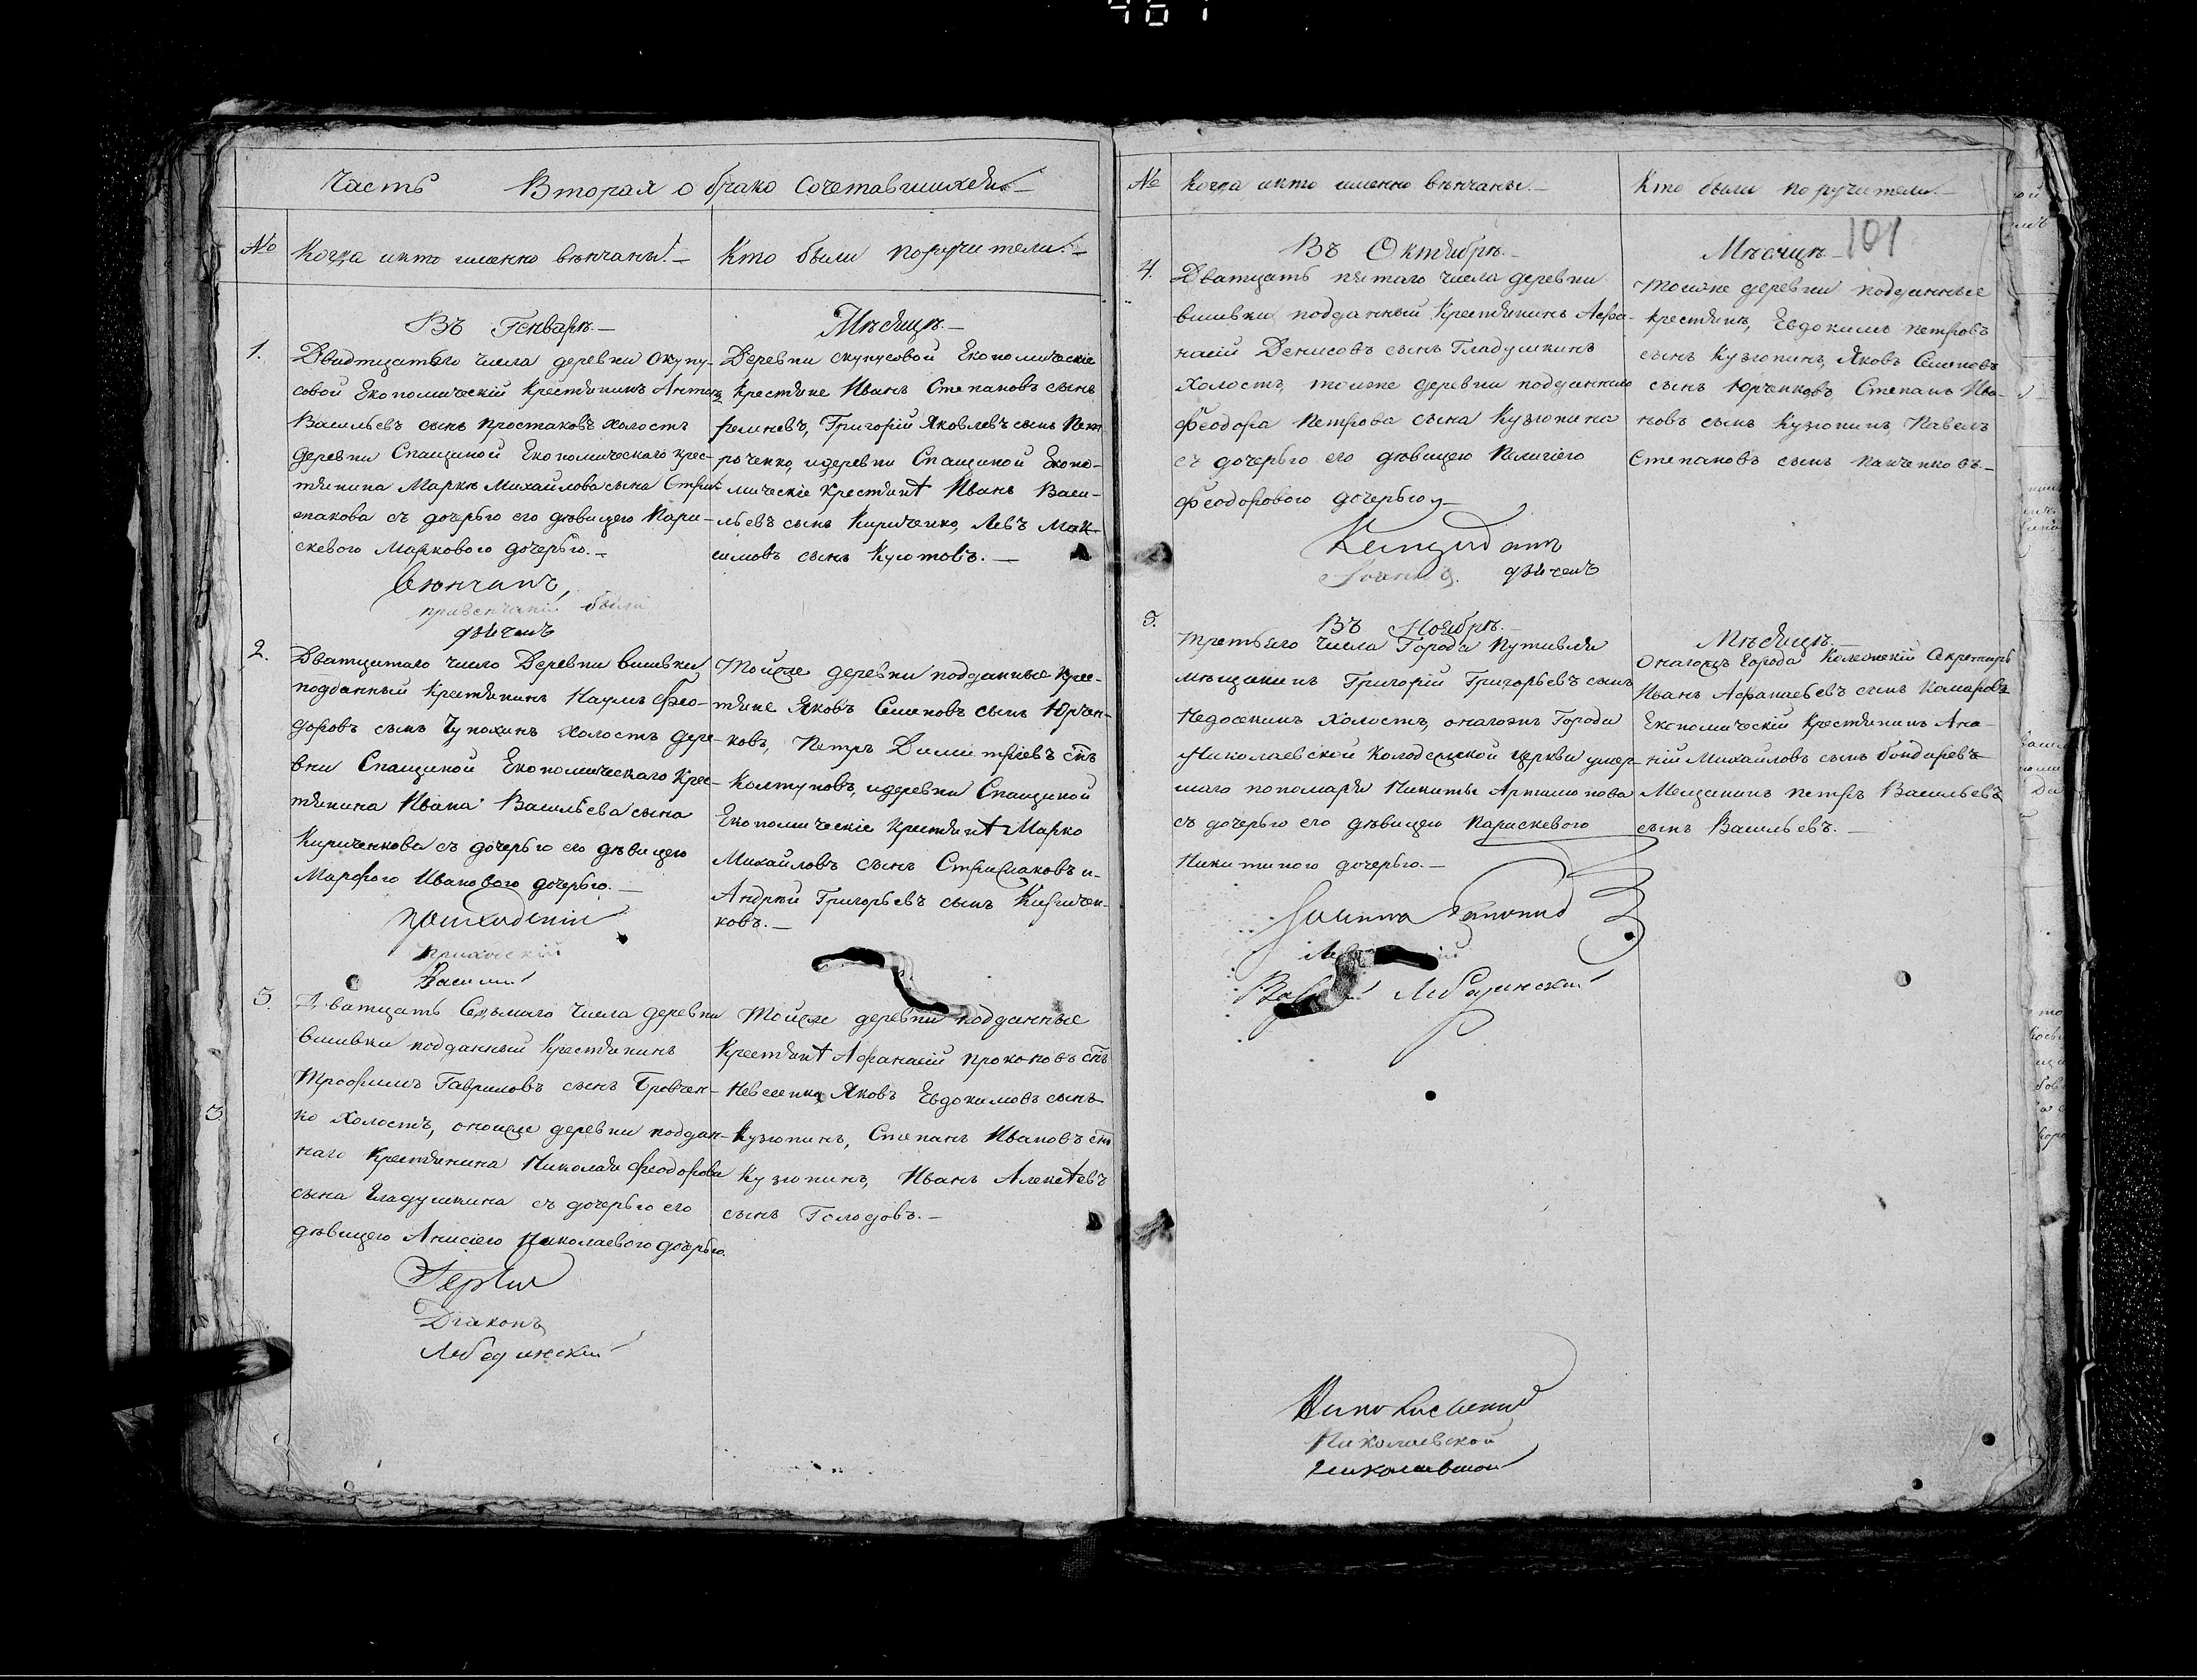 Часть Вторая о брако Сочетавшихся
№ Когда икто именно вѣнчаны. Кто были поручители.
Въ Генварѣ Мѣсяцѣ
1.
Двадтцатаго числа деревни Скупу-
совой Економическій Крестянинъ Антонъ
Васильевъ сынъ Простаковъ холостъ
деревни Спащиной Економическаго крес-
тянина Маркѣ Михайлова сына
съ дочерью его дѣвицею Пара-
скевою Марковою дочерью.
Деревни скупусовой Економическіе
Крестяне Иванъ Степановъ сынъ
Григорій Яковлевъ сынъ Пет
рченко, идеревни Спащиной Еконо-
мическіе Крестянѣ Иванъ Васи-
льевъ сынъ Кириченко, Левъ Мак-
симовъ сынъ Кустовъ.
Вѣнчалъ,
привенчаніи были
дячекъ
2.
Дватцатаго число Деревни вишвки
подданный Крестянинъ Наумъ Фео-
доровъ сынъ Чупохинъ холостъ дере-
вни Спащиной Економическаго Крес-
тянина Ивана Васильева сына
Кириченкова съ дочерью его дѣвицею
Марфою Ивановою дочерью.
Тойже деревни подданные Крес-
тяне Яковъ Семеновъ сынъ Юрчен-
ковъ, Петръ Димитріевъ снъ
Колтуновъ, идеревни Спащиной
Економическіе Крестянѣ Марко
Михайловъ сынъ и
Андрей Григорьевъ сынъ Киричен-
ковъ.
Приходскій
Приходскій
Василій
3.
Дватцать Седьмаго числа деревни
вишвки подданный Крестянинъ
Трофимъ Гавриловъ сынъ Бровчен-
ко Холостъ, оноиже деревни поддан-
наго Крестянина Николая Феодорова
сына Гладушкина съ дочерью его
дѣвицею Анисіею Николаевою дочерью.
Тойже деревни подданные
Крестянѣ Афанасій Прокоповъ снъ
Яковъ Евдокимовъ сынъ
Кузюпинъ, Степанъ Ивановъ снъ
Кузюпинъ, Иванъ Алексѣевъ
сынъ Голодовъ.
3
Діаконъ
Лебединскій
№ Когда икто именно вѣнчаны. Кто были поручители.
101
Въ Октябрѣ. Мѣсяцѣ
4.
Дватцать пятаго числа деревни
вишвки подданный Крестянинъ Афа-
насій Денисовъ сынъ Гладушкинъ
Холостъ, тоиже деревни подданнаго
Феодора Петрова сына Кузюпина
съ дочерью его дѣвицею Пелагіею
Феодоровою дочерью
Тоиже деревни подданные
крестянѣ, Евдокимъ Петровъ
сынъ Кузюпинъ, Яковъ Семеновъ
сынъ Юрченковъ, Степанъ Ива-
новъ сынъ Кузюпинъ, Павелъ
Степановъ сынъ Панченковъ
дячекъ
5.
Въ Ноябрѣ. Мѣсяцѣ.
Третьяго числа Города Путивля
мѣщанинъ Григорій Григорьевъ сынъ
Недосекинъ Холостъ, онагожъ Города
Николаевской Колодежской Церкви умер-
шаго пономаря Никиты Артамонова
съ дочерью его дѣвицею Параскевою
Никитиною дочерью.
Онагожъ Города Колежскій Секретарь
Иванъ Афанасьевъ сынъ Комаровъ
Економическій Крестянинъ Ана-
ній Михайловъ сынъ бондаревъ
Мещанинъ Петръ Васильевъ
сынъ Васильевъ.
Лебединскій
Николаевской
Николаевской